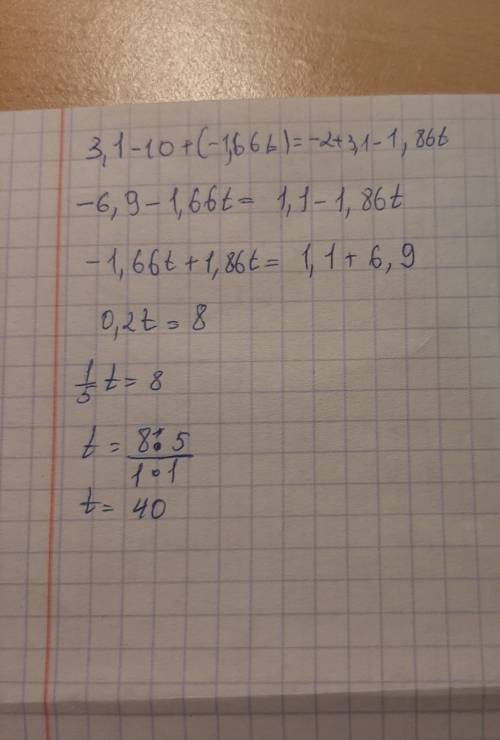 3,1-10+(-1,66t)=-2+3,1-1,86t
-6,9-1,66t= 1,1-1,86t
-1,66t+1,86t= 1,1+6,9
0,2t=8
1/5 t=8
t= 8•5/1•1
t= 40